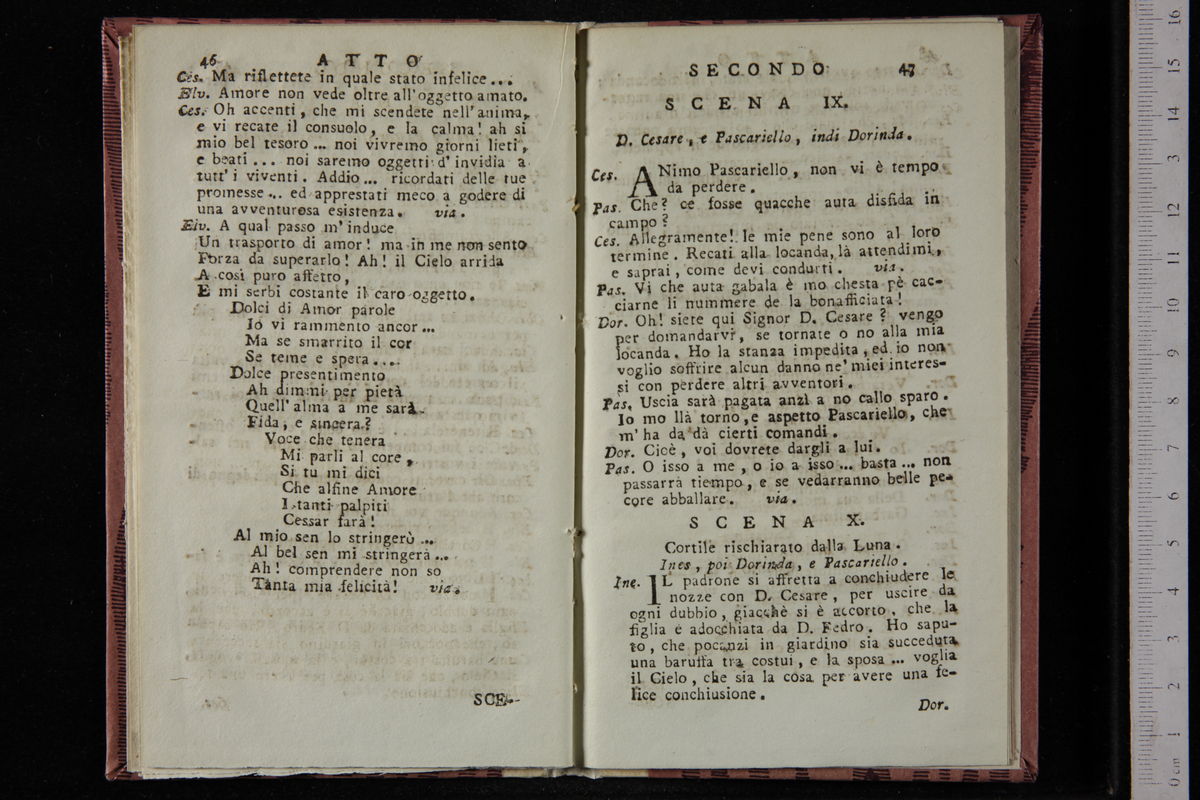 46 ATTO
Ces. Ma riflettete in quale stato infelice...
Elv. Amore non vede oltre all'oggetto amato.
Ces. Oh accenti, che mi scendete nell'anima,
e vi recate il consuolo, e la calma! ah si
mio bel tesoro ... noi vivremo giorni lieti,
e beati ... noi saremo oggetti d'invidia a
tutt' i viventi. Addio ... ricordati delle tue
promesse ... ed apprestati meco a godere di
una avventurosa esistenza. via.
Elv. A qual passo m'induce
Un trasporto di amor! ma in me non sento
Forza da superarlo! Ah! il Cielo arrida
A così puro affetto,
E mi serbi costante il caro oggetto.
Dolci di Amor parole
Io vi rammento ancor ...
Ma se smarrito il cor
Se teme e spera....
Dolce presentimento
Ah dimmi per pietà
Quell'alma a me sarà
Fida, e sincera?
Voce che tenera
Mi parli al core,
Si tu mi dici
Che alfine Amore
I tanti palpiti
Cessar farà!
Al mio sen lo stringerò ...
Al bel sen mi stringerà ...
Ah! comprendere non so
Tanta mia felicità! via.
SCE-
SECONDO 47
SCENA IX.
D. Cesare, e Pascariello, indi Dorinda.
Ces. ANimo Pascariello, non vi è tempo
da perdere.
Pas. Che? ce fosse quacche auta disfida in
campo?
Ces. Allegramente! le mie pene sono al loro
termine. Recati alla locanda, là attendimi,
e saprai, come devi condurti. via.
Pas. Vi che auta gabala è mo chesta pè cac-
ciarne li nummere de la bonafficiata!
Dor. Oh! siete qui Signor D. Cesare? vengo
per domandarvi, se tornate o no alla mia
locanda. Ho la stanza impedita, ed io non
voglio soffrire alcun danno ne' miei interes-
si con perdere altri avventori.
Pas. Uscia sarà pagata anzi a no callo sparo.
Io mo llà torno, e aspetto Pascariello, che
m'ha da dà cierti comandi.
Dor. Cicè, voi dovrete dargli a lui.
Pas. O isso a me, o io a isso ... basta ... non
passarrà tiempo, e se vedarranno belle pe-
core abballare. via.
SCENA X.
Cortile rischiarato dalla Luna.
Ines, poi Dorinda, e Pascariello.
Ine. IL padrone si affretta a conchiudere le
nozze con D. Cesare, per uscire da
ogni dubbio, giacchè si è accorto, che la
figlia è adocchiata da D. Fedro. Ho sapu-
to, che pocanzi in giardino sia succeduta
una baruffa tra costui, e la sposa ... voglia
il Cielo, che sia la cosa per avere una fe-
lice conchiusione.
Dor.
0 cm 1 2 3 4 5 6 7 8 9 10 11 12 13 14 15 16